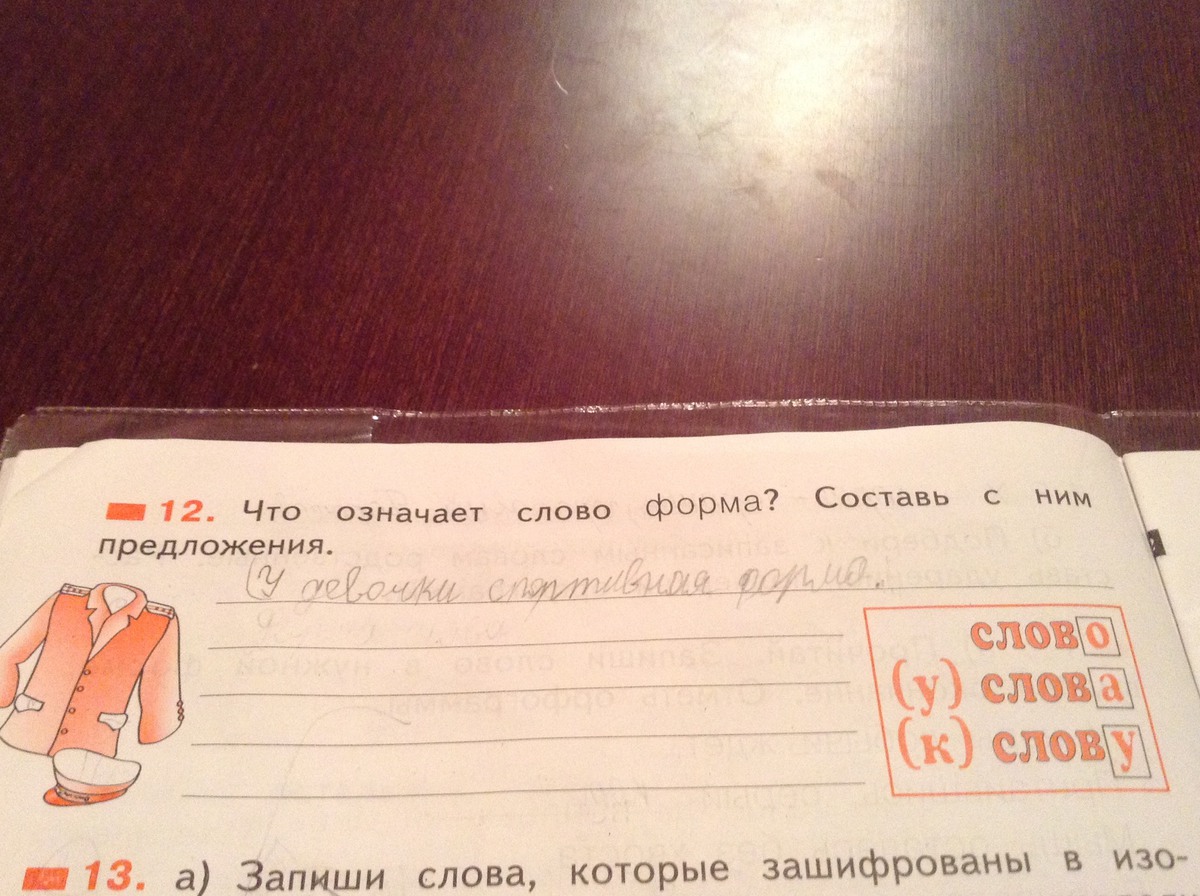 12. Что означает слово форма? Составь с ним
предложения.
У девочки спортивная форма.
слово
(у) слова
(к) слову
13. а) Запиши слова, которые зашифрованы в изо-